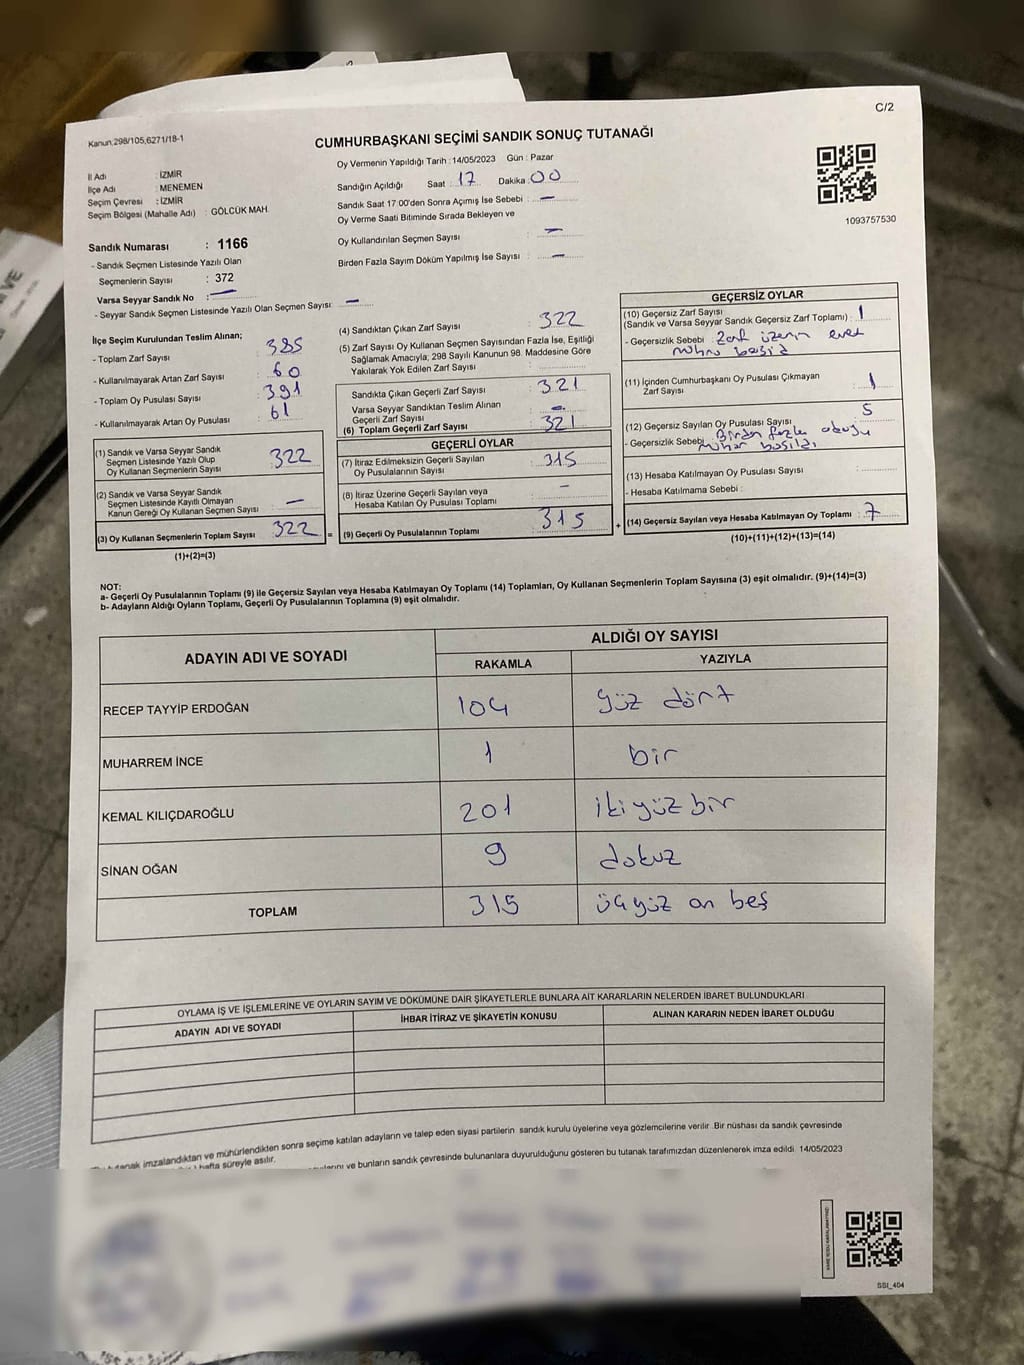 C/2
Kanun,298/105,6271/18-1
CUMHURBAŞKANI SEÇİMİ SANDIK SONUÇ TUTANAĞI
İl Adı : İZMİR
İlçe Adı : MENEMEN
Seçim Çevresi : İZMİR
Seçim Bölgesi (Mahalle Adı) : GÖLCÜK MAH.
Oy Vermenin Yapıldığı Tarih : 14/05/2023 Gün : Pazar
Sandığın Açıldığı Saat : 17 Dakika : 00
Sandık Saat 17:00'den Sonra Açımış İse Sebebi : —
Oy Verme Saati Bitiminde Sırada Bekleyen ve
Oy Kullandırılan Seçmen Sayısı : —
Birden Fazla Sayım Döküm Yapılmış İse Sayısı : —
1093757530
Sandık Numarası : 1166
- Sandık Seçmen Listesinde Yazılı Olan
Seçmenlerin Sayısı : 372
Varsa Seyyar Sandık No : —
- Seyyar Sandık Seçmen Listesinde Yazılı Olan Seçmen Sayısı: —
İlçe Seçim Kurulundan Teslim Alınan;
- Toplam Zarf Sayısı : 385
- Kullanılmayarak Artan Zarf Sayısı : 60
- Toplam Oy Pusulası Sayısı : 391
- Kullanılmayarak Artan Oy Pusulası : 61
(1) Sandık ve Varsa Seyyar Sandık
Seçmen Listesinde Yazılı Olup
Oy Kullanan Seçmenlerin Sayısı : 322
(2) Sandık ve Varsa Seyyar Sandık
Seçmen Listesinde Kayıtlı Olmayan
Kanun Gereği Oy Kullanan Seçmen Sayısı : —
(3) Oy Kullanan Seçmenlerin Toplam Sayısı : 322 =
(1)+(2)=(3)
(4) Sandıktan Çıkan Zarf Sayısı : 322
(5) Zarf Sayısı Oy Kullanan Seçmen Sayısından Fazla İse, Eşitliği
Sağlamak Amacıyla; 298 Sayılı Kanunun 98. Maddesine Göre
Yakılarak Yok Edilen Zarf Sayısı :
Sandıkta Çıkan Geçerli Zarf Sayısı : 321
Varsa Seyyar Sandıktan Teslim Alınan
Geçerli Zarf Sayısı : —
(6) Toplam Geçerli Zarf Sayısı : 321
GEÇERLİ OYLAR
(7) İtiraz Edilmeksizin Geçerli Sayılan
Oy Pusulalarının Sayısı : 315
(8) İtiraz Üzerine Geçerli Sayılan veya
Hesaba Katılan Oy Pusulası Toplamı : —
(9) Geçerli Oy Pusulalarının Toplamı : 315 +
GEÇERSİZ OYLAR
(10) Geçersiz Zarf Sayısı
(Sandık ve Varsa Seyyar Sandık Geçersiz Zarf Toplamı) : 1
- Geçersizlik Sebebi : Zarf üzerin evet
mührü basıldı
(11) İçinden Cumhurbaşkanı Oy Pusulası Çıkmayan
Zarf Sayısı : 1
(12) Geçersiz Sayılan Oy Pusulası Sayısı : 5
- Geçersizlik Sebebi : Birden fazla
mühür basıldı
(13) Hesaba Katılmayan Oy Pusulası Sayısı :
- Hesaba Katılmama Sebebi :
(14) Geçersiz Sayılan veya Hesaba Katılmayan Oy Toplamı : 7
(10)+(11)+(12)+(13)=(14)
NOT:
a- Geçerli Oy Pusulalarının Toplamı (9) ile Geçersiz Sayılan veya Hesaba Katılmayan Oy Toplamı (14) Toplamları, Oy Kullanan Seçmenlerin Toplam Sayısına (3) eşit olmalıdır. (9)+(14)=(3)
b- Adayların Aldığı Oyların Toplamı, Geçerli Oy Pusulalarının Toplamına (9) eşit olmalıdır.
ADAYIN ADI VE SOYADI
ALDIĞI OY SAYISI
RAKAMLA YAZIYLA
RECEP TAYYİP ERDOĞAN 104 yüz dört
MUHARREM İNCE 1 bir
KEMAL KILIÇDAROĞLU 201 iki yüz bir
SİNAN OĞAN 9 dokuz
TOPLAM 315 üçyüz on beş
OYLAMA İŞ VE İŞLEMLERİNE VE OYLARIN SAYIM VE DÖKÜMÜNE DAİR ŞİKAYETLERLE BUNLARA AİT KARARLARIN NELERDEN İBARET BULUNDUKLARI
ADAYIN ADI VE SOYADI İHBAR İTİRAZ VE ŞİKAYETİN KONUSU ALINAN KARARIN NEDEN İBARET OLDUĞU
tutanak imzalandıktan ve mühürlendikten sonra seçime katılan adayların ve talep eden siyasi partilerin sandık kurulu üyelerine veya gözlemcilerine verilir. Bir nüshası da sandık çevresinde
hafta süreyle asılır.
ve bunların sandık çevresinde bulunanlara duyurulduğunu gösteren bu tutanak tarafımızdan düzenlenerek imza edildi. 14/05/2023
SSI_404